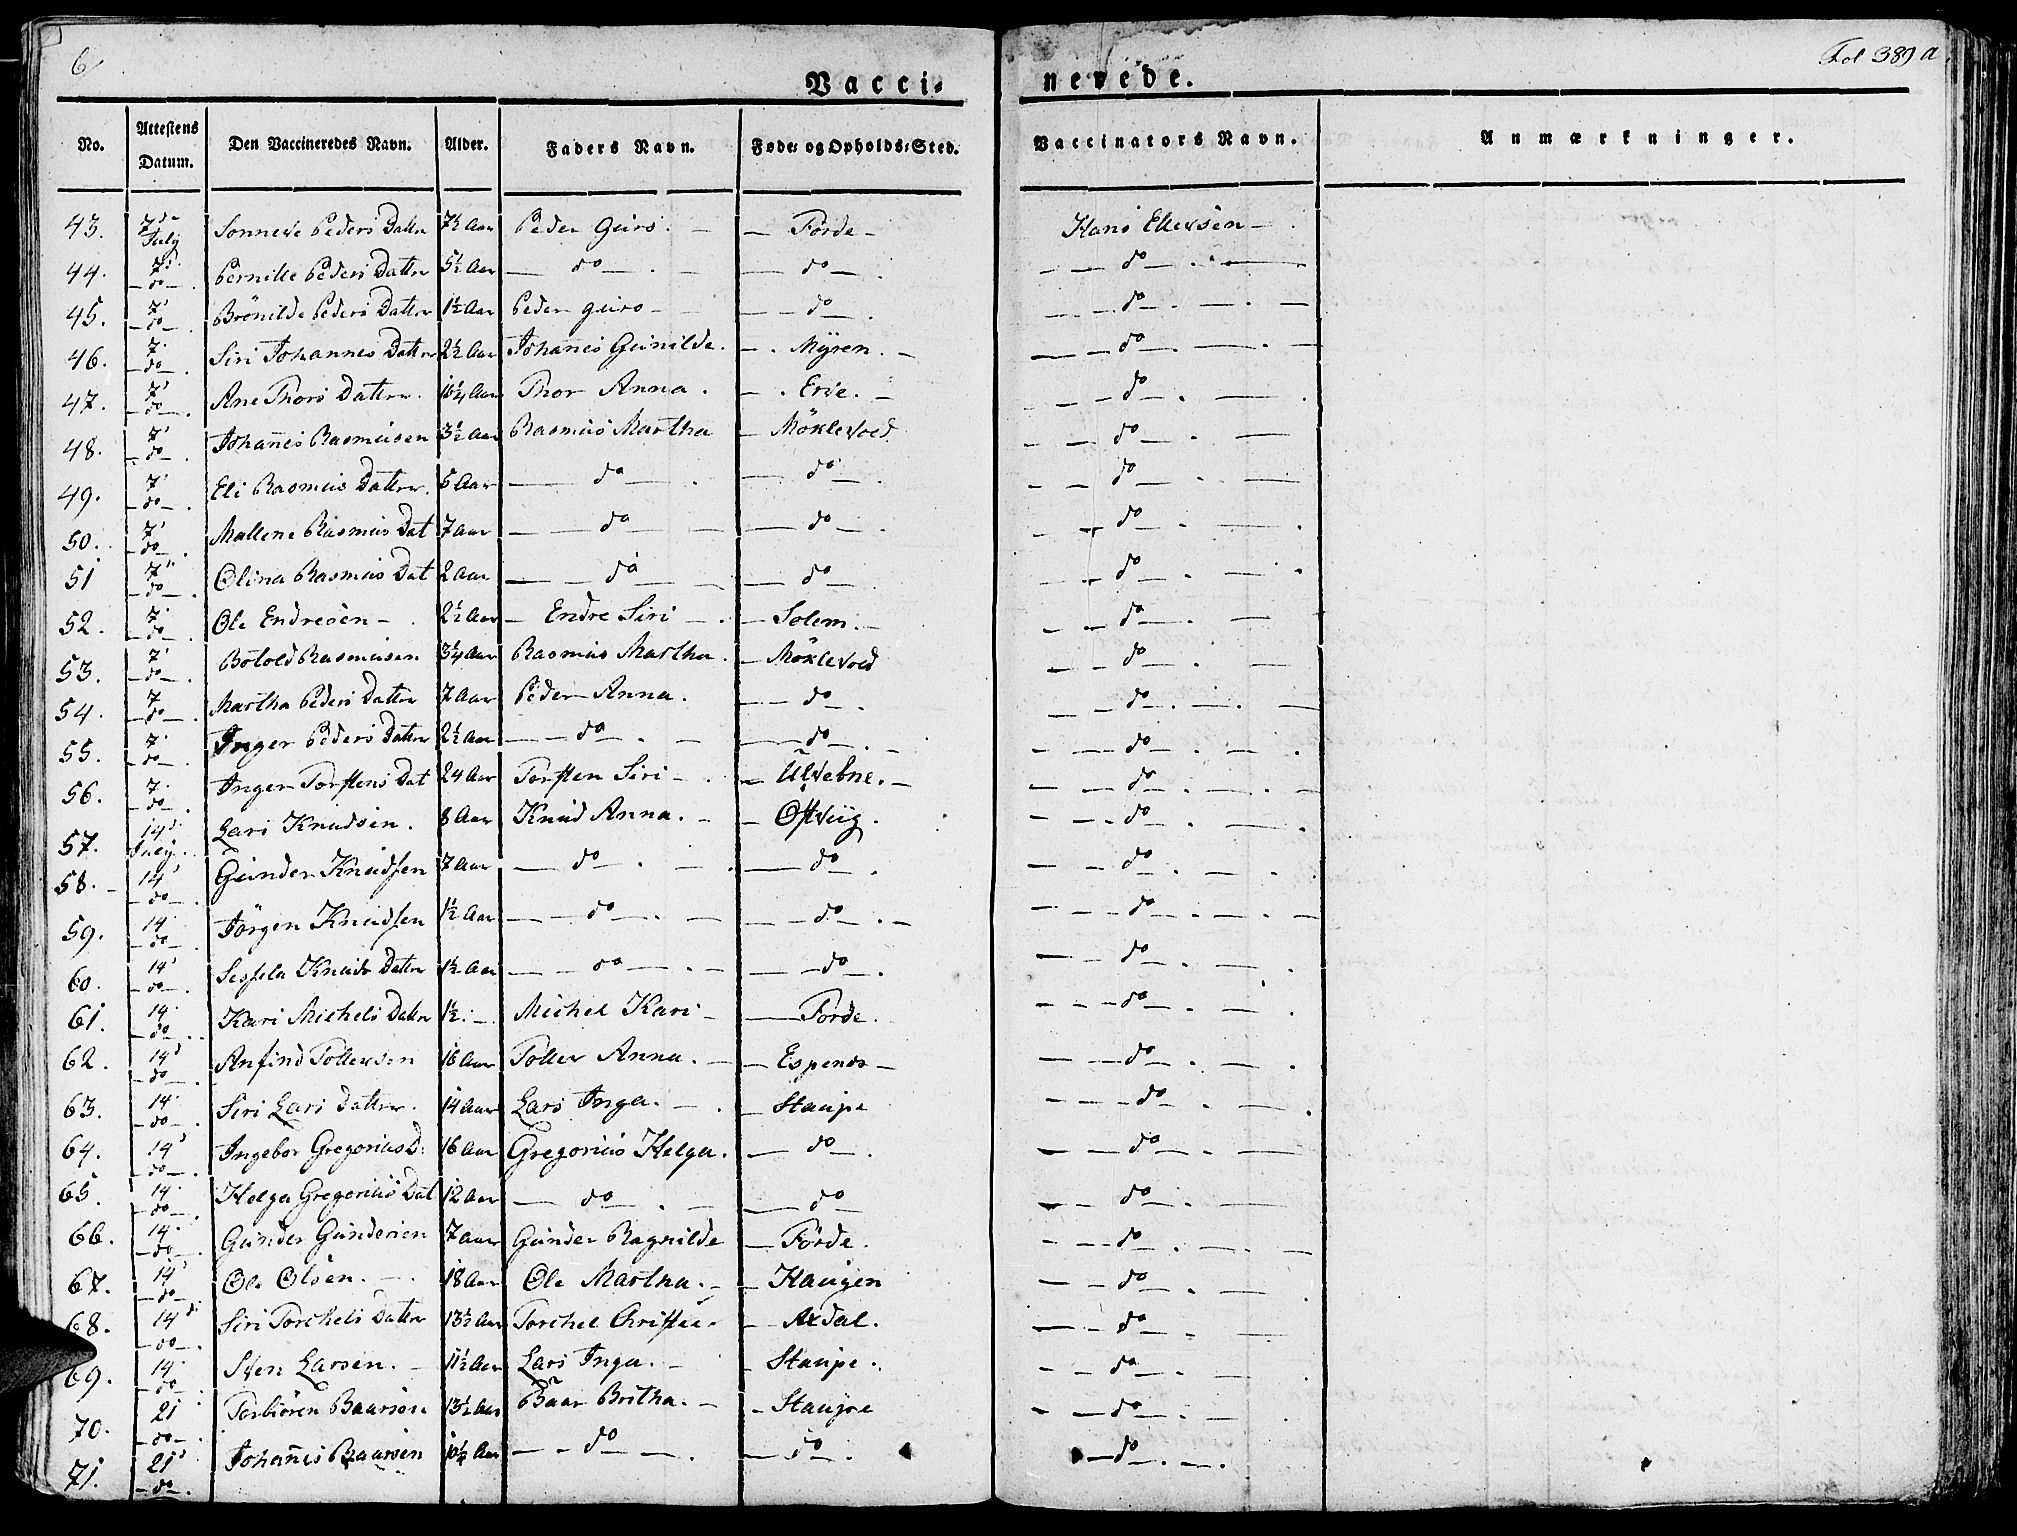 6
Fol 389 a
Vacci-
nerede.
No. Attestens Datum. Den Vaccineredes Navn. Alder. Faders Navn. Føde- og Opholds-Sted. Vaccinators Navn. Anmærkninger.
43. 7de July Sonneve Peders Dattr 7½ Aar Peder Guro. - - Förde - Hans Ellersen -
44. 7d do Pernille Peders Dattr 5½ Aar do do do
45. 7' do Brönilde Peders Dattr 1½ Aar Peder guro - do do
46. 7. do Siri Johannes Dattr 2½ Aar Johanes Gunilde. - Myren. - do
47. 7' do Ane Thors Dattrr. 10¼ Aar Thor Anna. - Erve. - do
48. 7' do Johanes Rasmusen 3½ Aar Rasmus Martha - Möklevold do
49. 7' do Eli Rasmus Dattrr. 5 Aar do do do
50. 7' do Mallene Rasmus Dat 7 aar do do do
51 7' do Olina Rasmus Dat 2 Aar do do do
52. 7. do Ole Endresen - 2½ Aar - Endre Siri - - Solem. - do
53. 7' do Botold Rasmusen 3¼ Aar Rasmus Martha. - Möklevold do
54. 7 do Martha Peders Dattrr 7 Aar Peder Anna. do do
55. 7. do Inger Peders Dattrr 2½ Aar do do do
56. 7. do Inger Torstens Dat 24 Aar Torsten Siri - - Ulvebne. - do
57. 14d July Lars Knudsen. 8 Aar Knud Anna. - - Ostvig. do
58. - 14' do Gunder Knudsen 7 Aar do do do
59. 14. do Jörgen Knudsen 1½ Aar do do do
60. 14' do Sesela Knuds Dattrr 1½ Aar do do do
61. 14. do Kari Michels Dattr 1½. - Michel Kari - Förde. do
62. 14d do Anfind Tollevsen 16 Aar Tollev Anna. - - Espenes - do
63. 14. do Siri Lars Dattrr. 14 Aar Lars Inga. - - Staupe do
64. 14' do Ingebor Gregorius D: 16 Aar Gregorius Helga. do do
65. 14. do Helga Gregorius Dat 12 Aar do do do
66. 14. do Gunder Gundersen 7 aar Gunder Ragnilde - Förde. do
67. 14' do Ole Olsen. - 18 Aar Ole Martha. - - Haugen do
68. 14d do Siri Torchels Dattrr 13½ Aar Torchel Christie. - Axdal. do
69. 14. do Sven Larsen. - 11½ Aar Lars Inga. - - Staupe. do
70. 21 do Torbiören Baarsen 13½ Aar Baar Britha. - - Staupe do
71. 21d do Johanes Baarsen 10¼ Aar do do do